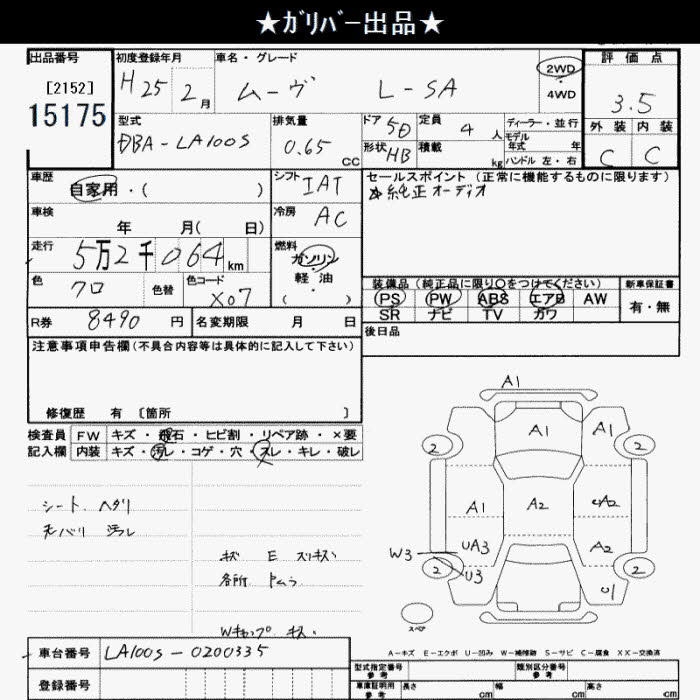 ★ｶﾞﾘﾊﾞｰ出品★
出品番号 初度登録年月 車名・グレード 2WD 評価点
[2152] H25 2月 ムーヴ L-SA ・ 4WD 3.5
15175
型式 排気量 ドア 5D 定員 4人 ディーラー・並行 外装 内装
DBA-LA100S 0.65 cc 形状 HB 積載 kg モデル年式 年 C C
ハンドル 左・右
車歴 自家用・( ) シフト IAT セールスポイント (正常に機能するものに限ります)
☆純正オーディオ
車検 年 月( 日) 冷房 AC
走行 5万2千064km 燃料 ガソリン・軽油 ( )
色 クロ 色替 色コード X07 装備品 (純正品に限り○をつけてください) 新車保証書
PS PW ABS エアB AW 有・無
SR ナビ TV カワ
R券 8490円 名変期限 月 日 後日品
注意事項申告欄(不具合内容等は具体的に記入して下さい)
修復歴 有 [箇所 ]
検査員 FW キズ・飛石・ヒビ割・リペア跡・×要
記入欄 内装 キズ・汚レ・コゲ・穴・スレ・キレ・破レ
シート ヘタリ
天バリ 汚レ
キズ E スリキズ
各所 トムラ
Wキャップ キズ
A1
A1 A1
2 2
A1 A2 A2
UA3 A2
W3
2 U3 2
U1
スペア
A-キズ E-エクボ U-凹み W-補修跡 S-サビ C-腐食 XX-交換済
車台番号 LA100S-0200335
登録番号
型式指定番号 参考 類別区分番号 参考
車庫証明用 参考 長さ cm 幅 cm 高さ cm